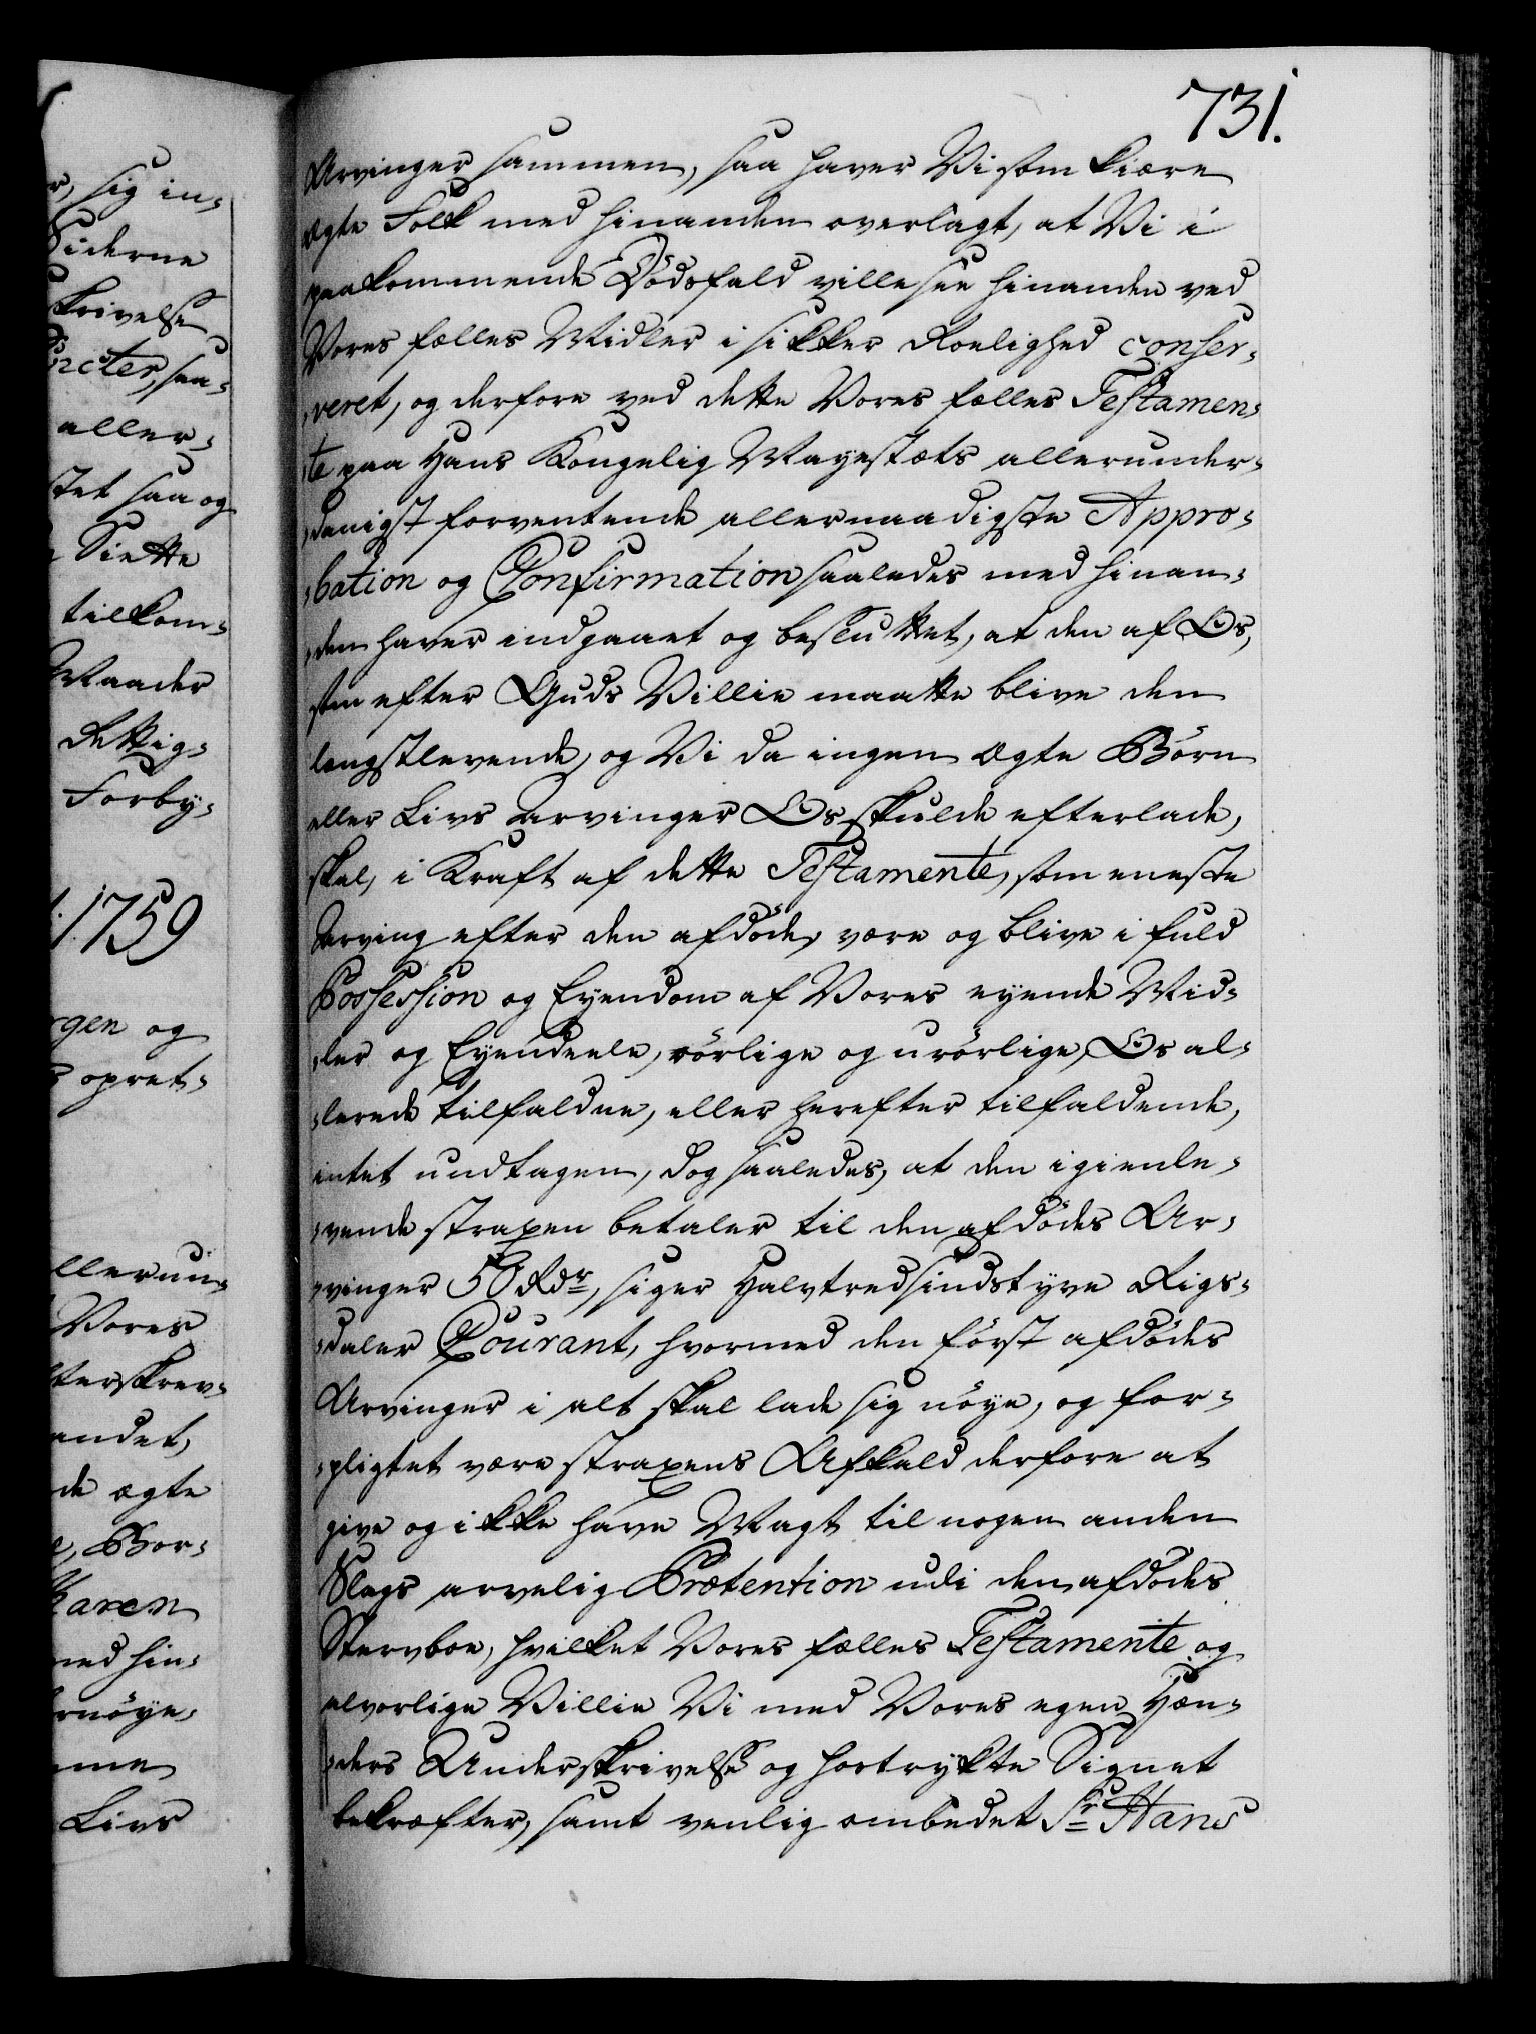 731.
Arvinger sammen, saa haver Vi som kiære
ægte Folk med hinanden overlagt, at Vi i
paakommende Dødsfald ville see hinanden ved
Vores fælles Midler i sikker Roelighed conser¬
¬veret, og derfore ved dette Vores fælles Testamen¬
¬te paa Hans Kongelig Mayestæts allerunder¬
¬danigst forventende allernaadigste Appro¬
¬bation og Confirmation saaledes med hinan¬
¬den haver indgaaet og besluttet, at den af Os,
som efter Guds Villie maatte blive den
længstlevende, og Vi da ingen ægte Børn
eller Livs Arvinger Os skulde efterlade,
skal, i Kraft af dette Testamente, som eneste
Arving efter den afdøde, være og blive i fuld
Possession og Eyendom af Vores eyende Mid¬
¬ler og Eyendeele, rørlige og urørlige, Os al¬
¬lerede tilfaldne, eller herefter tilfaldende,
intet undtagen, dog saaledes, at den igienle¬
¬vende straxen betaler til den afdødes Ar¬
¬vinger 50 Rdr, siger Halvtredsindstyve Rigs¬
¬daler Courant, hvormed den først afdødes
Arvinger i alt skal lade sig nøye, og for¬
¬pligtet være straxens Afkald derfore at
give og ikke have Magt til nogen anden
Slags arvelig Prætention udi den afdødes
Stervboe, hvilket Vores fælles Testamente og
alvorlige Villie Vi med Vores egen Hæn¬
¬ders Underskrivelse og hostrykte Signet
bekræfter, samt venlig ombedet Sr Hans
r, sig in¬
Siderne
skrivelse
ncter, saa¬
aller¬
stet saa og
Siette
tilkom¬
Maader
Rettig¬
Forby¬
1759
rgen og
opret¬
llerun¬
Vores
terskrev¬
andet,
de ægte
e, Bor¬
Karen
med hin¬
rnøye¬
me
Livs